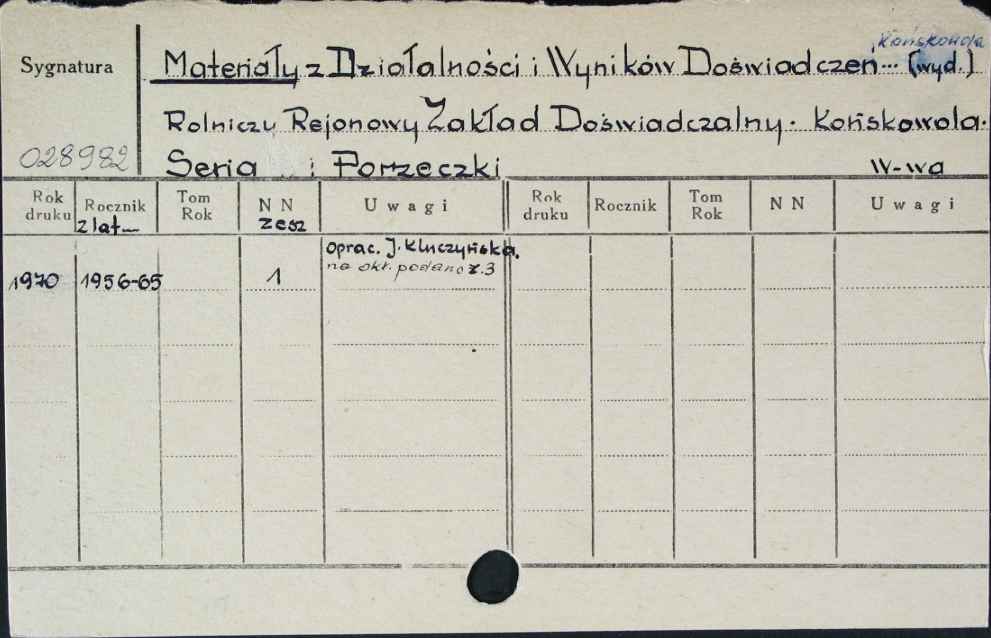 Końskowola
Sygnatura
Materiały z Działalności i Wyników Doświadczeń... (wyd.)
Rolniczy Rejonowy Zakład Doświadczalny. Końskowola.
028982
Seria i Porzeczki W-wa
Rok druku Rocznik Tom Rok N N Uwagi Rok druku Rocznik Tom Rok N N Uwagi
z lat zesz
oprac. J. Kluczyńska.
na okł. podano z.3
1970 1956-65 1